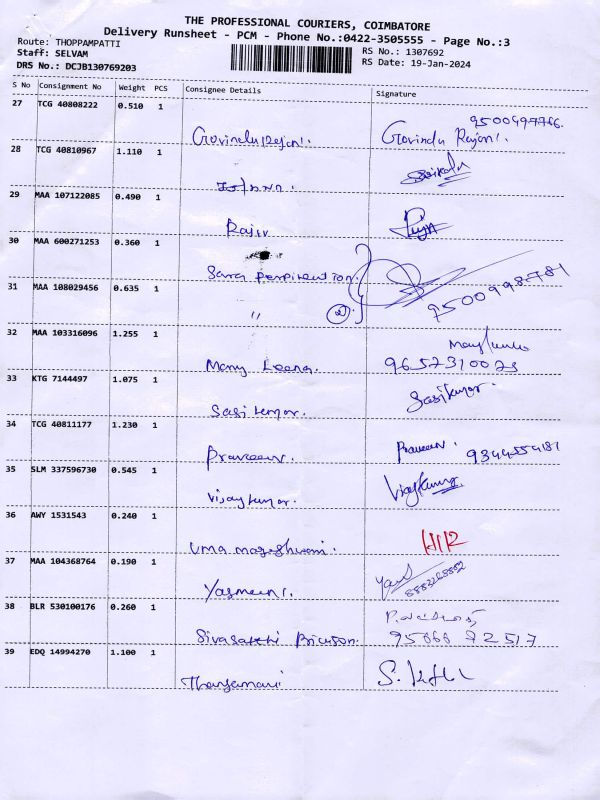 THE PROFESSIONAL COURIERS, COIMBATORE
Delivery Runsheet - PCM - Phone No.:0422-3505555 - Page No.:3
Route: THOPPAMPATTI
RS No.: 1307692
Staff: SELVAM
RS Date: 19-Jan-2024
DRS No.: DCJB130769203
S No Consignment No Weight PCS Consignee Details Signature
27 TCG 40808222 0.510 1
9500497766.
Govindu Rajan. Govindu Rajan.
28 TCG 40810967 1.110 1
29 MAA 107122085 0.490 1
Rajiv
30 MAA 600271253 0.360 1
Sara
31 MAA 108029456 0.635 1
9500998781
" 2
32 MAA 103316096 1.255 1
Mary Leena. 9652310023
33 KTG 7144497 1.075 1
Sasi kumar. Sasikumar.
34 TCG 40811177 1.230 1
Praveen. Praveen.
35 SLM 337596730 0.545 1
Vijaykumar. Vijaykumar
36 AWY 1531543 0.240 1
Uma mageshwari.
37 MAA 104368764 0.190 1
Yasmeen.
38 BLR 530100176 0.260 1
Sivasakthi
39 EDQ 14994270 1.100 1
Thangamani